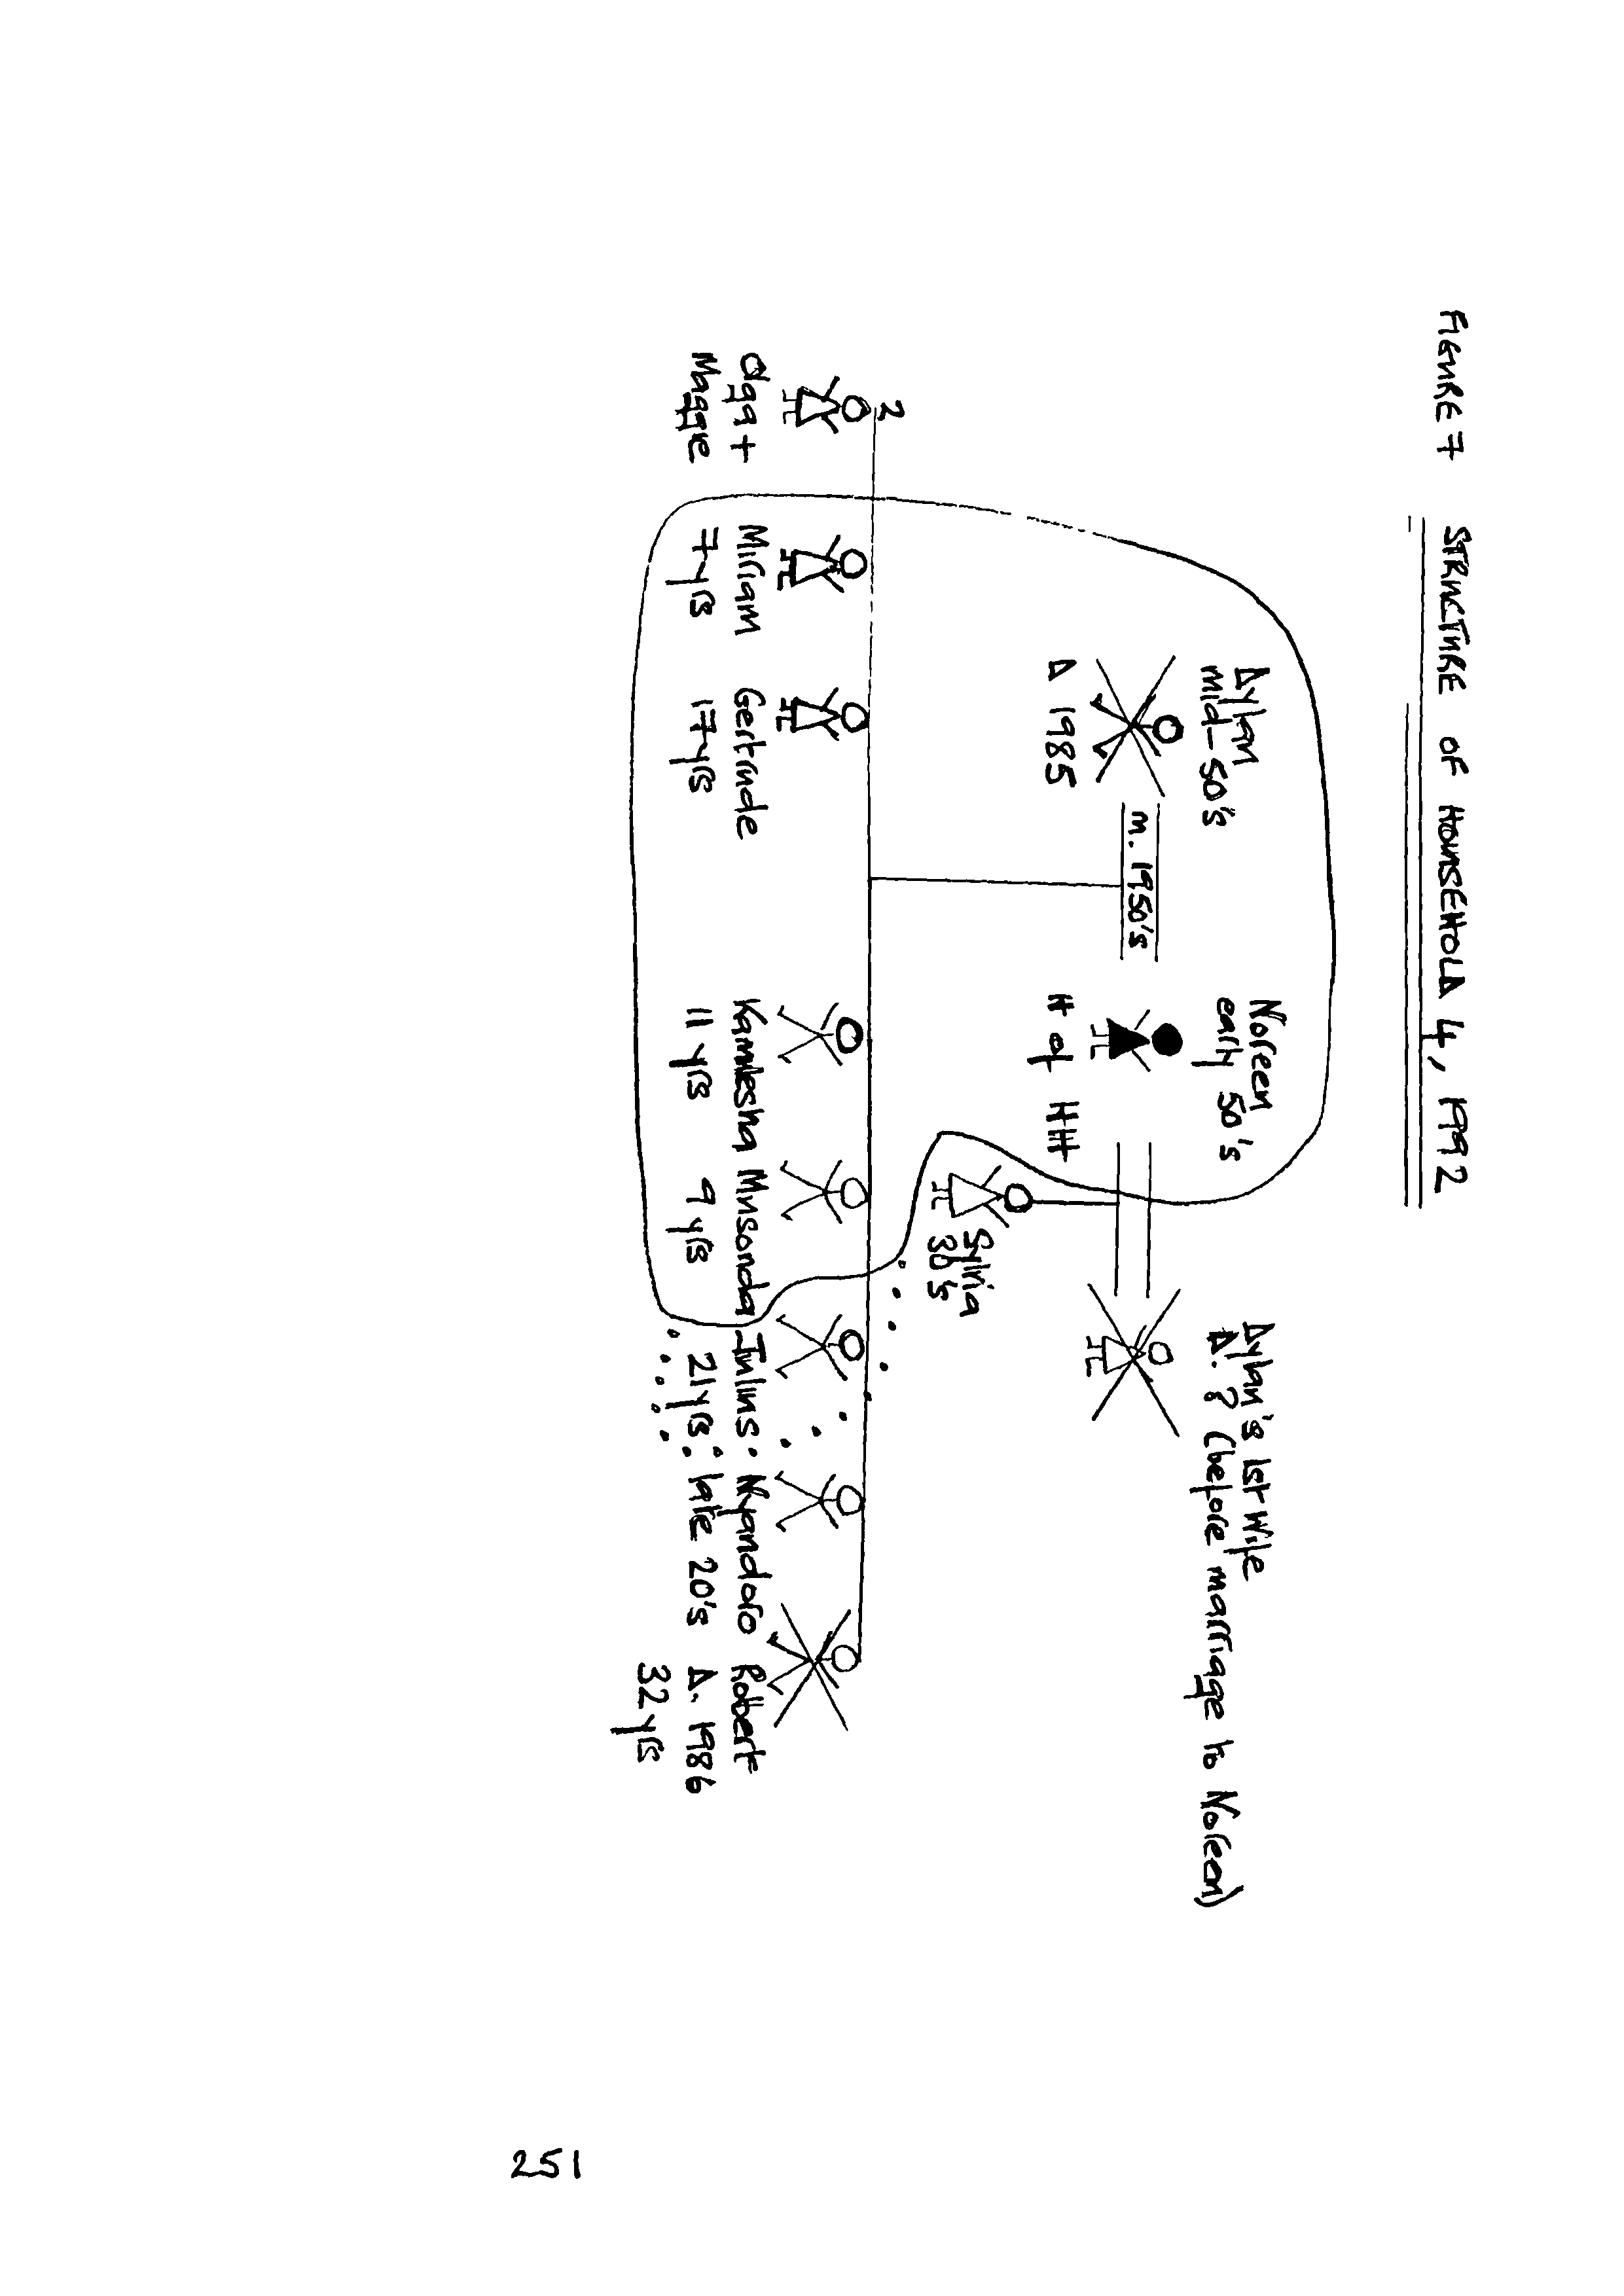 FIGURE 7 STRUCTURE OF HOUSEHOLD 4, 1992
Dylan
mid-50's
D 1985
m. 1950's
Noreen
early 50's
H of HH
Dylan's 1st Wife
D. ? (before marriage to Noreen)
Sylvia
30's
2
Olga +
Maggie
Miriam
7yrs
Gertrude
17yrs
Kamlesha
11 yrs
Musonda
9 yrs
Julius
21yrs
Nyandoro
late 20's
Robert
D. 1986
32 yrs
251